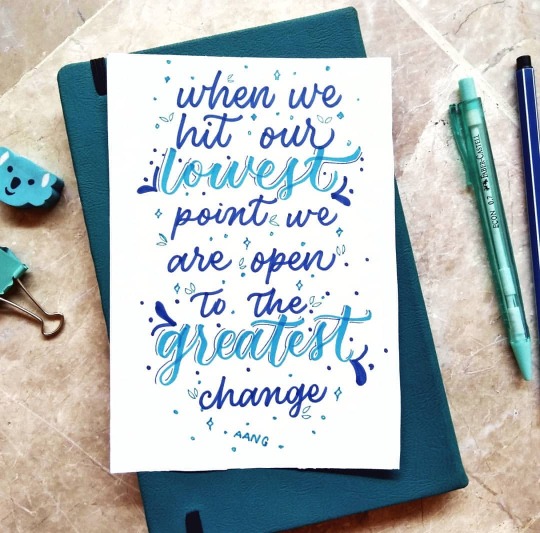 when we
hit our
lowest
point we
are open
to the
greatest
change
AANG
ECON 0.7 FABER-CASTELL